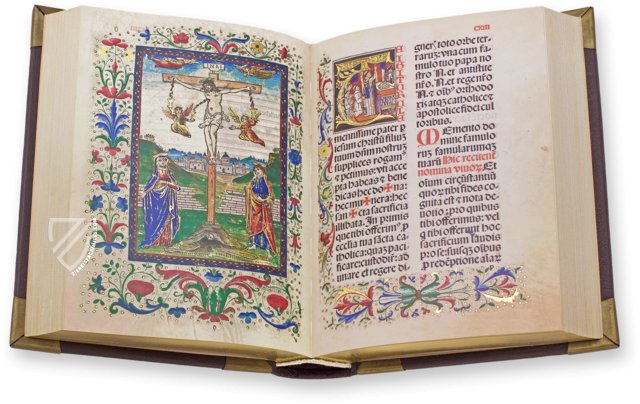 INRI
CXIII
E IGITVR C
mentissime pater p
iesum christū filiuʒ
tuum dñm nostrum
supplices rogam⁹
⁊ petimus. vti ac
cepta habeas ⁊ bene
dicas hec do✠na
hec mu✠nera: hec
san✠cta sacrificia
illibata. In primis
que tibi offerim⁹. p
ecclesia tua sācta ca
tholica: quaʒ paci
ficare: custodir̄: ad
unare et regere di
gneris toto orbe ter
rarum: vna cum fa
mulo tuo papa no
stro .N. et antistite
nr̄o .N. et rege nr̄o
.N. et oībꝰ orthodo
xis atqʒ catholice et
apostolice fidei cul
toribus.
Memento do
mine famulo
rum famularumqʒ
tuarū Hic recitent
nomina viuorꝫ Et
oīum circūstantiuʒ
quorum tibi fides co
gnita est ⁊ nota deuo
tio. pro quibus
tibi offerimus: vel
qui tibi offerunt hoc
sacrificium laudis
pro se suisqʒ oībus
ꝓ redemptione aīar